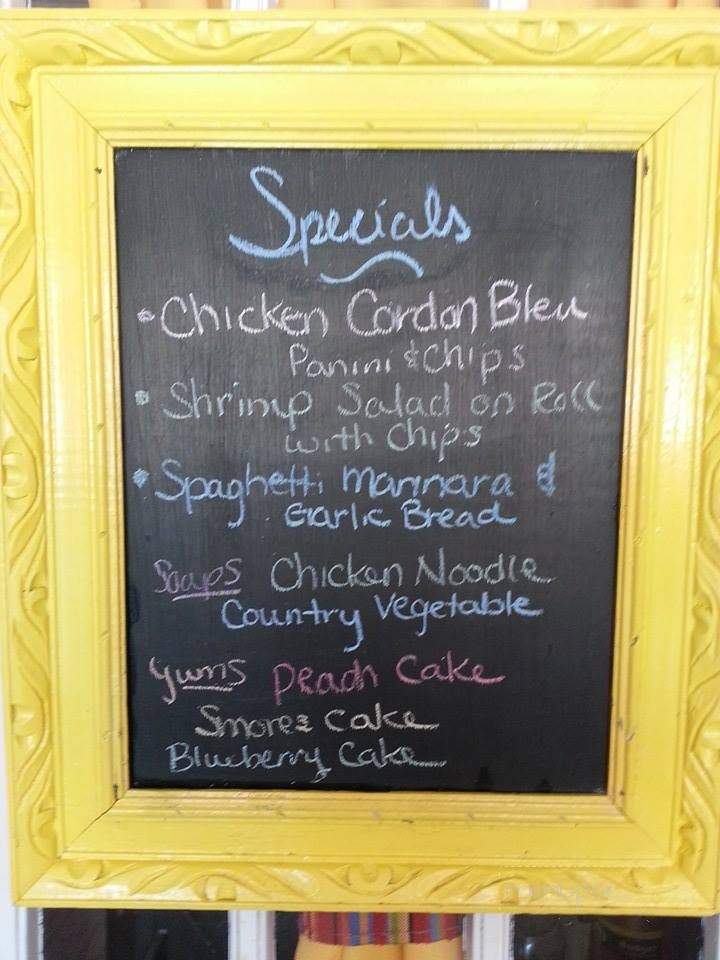 Specials
• Chicken Cordon Bleu
Panini & Chips
• Shrimp Salad on Roll
with Chips
• Spaghetti Marinara &
Garlic Bread
Soups Chicken Noodle
Country Vegetable
Yums Peach Cake
Smores Cake
Blueberry Cake